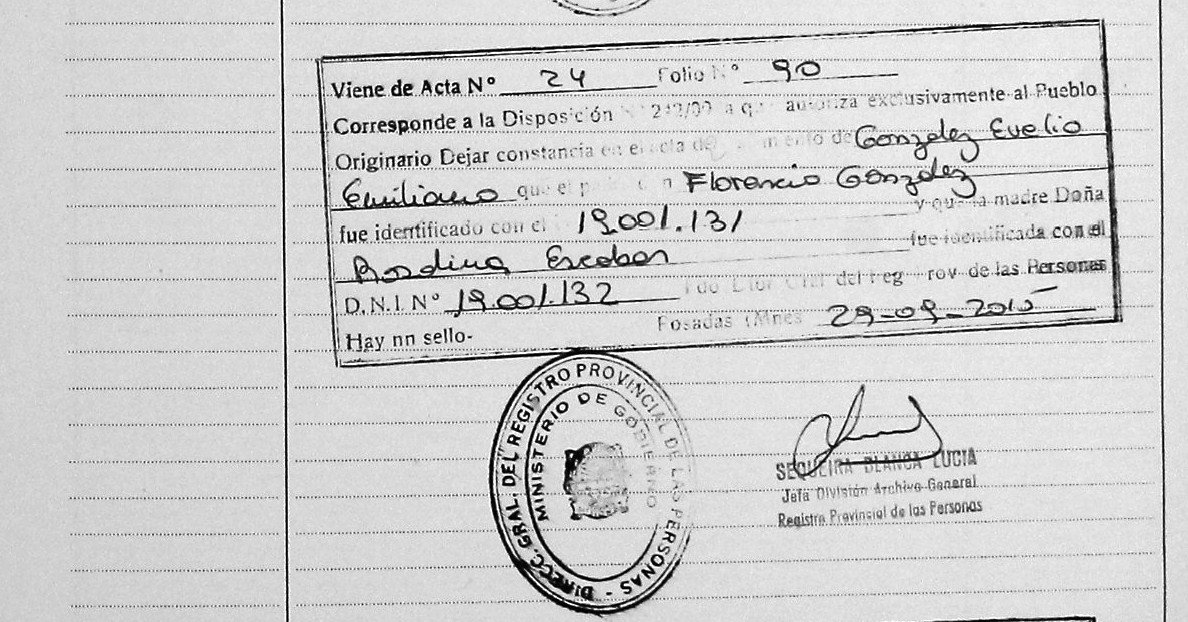 Viene de Acta Nº 24 Folio Nº 90
Corresponde a la Disposición Nº 212/09 a que autoriza exclusivamente al Pueblo
Originario Dejar constancia en el acta de de Gonzalez Evelio
Emiliano que el Florencio Gonzalez
fue identificado con el 19.001.131 y que la madre Doña
Escobar fue identificada con el
D.N.I. Nº 19.001.132 del Reg Prov de las Personas
Hay nn sello- Posadas (Mnes 29-09-2015
DIRECC. GRAL. DEL REGISTRO PROVINCIAL DE LAS PERSONAS -
MINISTERIO DE GOBIERNO
SEQUEIRA BLANCA LUCIA
Jefa División Archivo General
Registro Provincial de las Personas